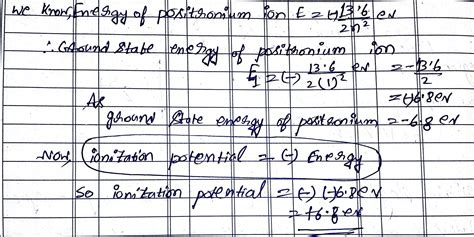 We Know, Energy of positronium ion E = (-) 13.6 / 2n² ev
∴ Ground state energy of positronium ion
E₁ = (-) 13.6 / 2(1)² ev = -13.6 / 2
= (-) 6.8 ev
As
ground state energy of positronium = -6.8 ev
Now, ionization potential = (-) Energy
So ionitation potential = (-) (-)6.8 ev
= +6.8 ev